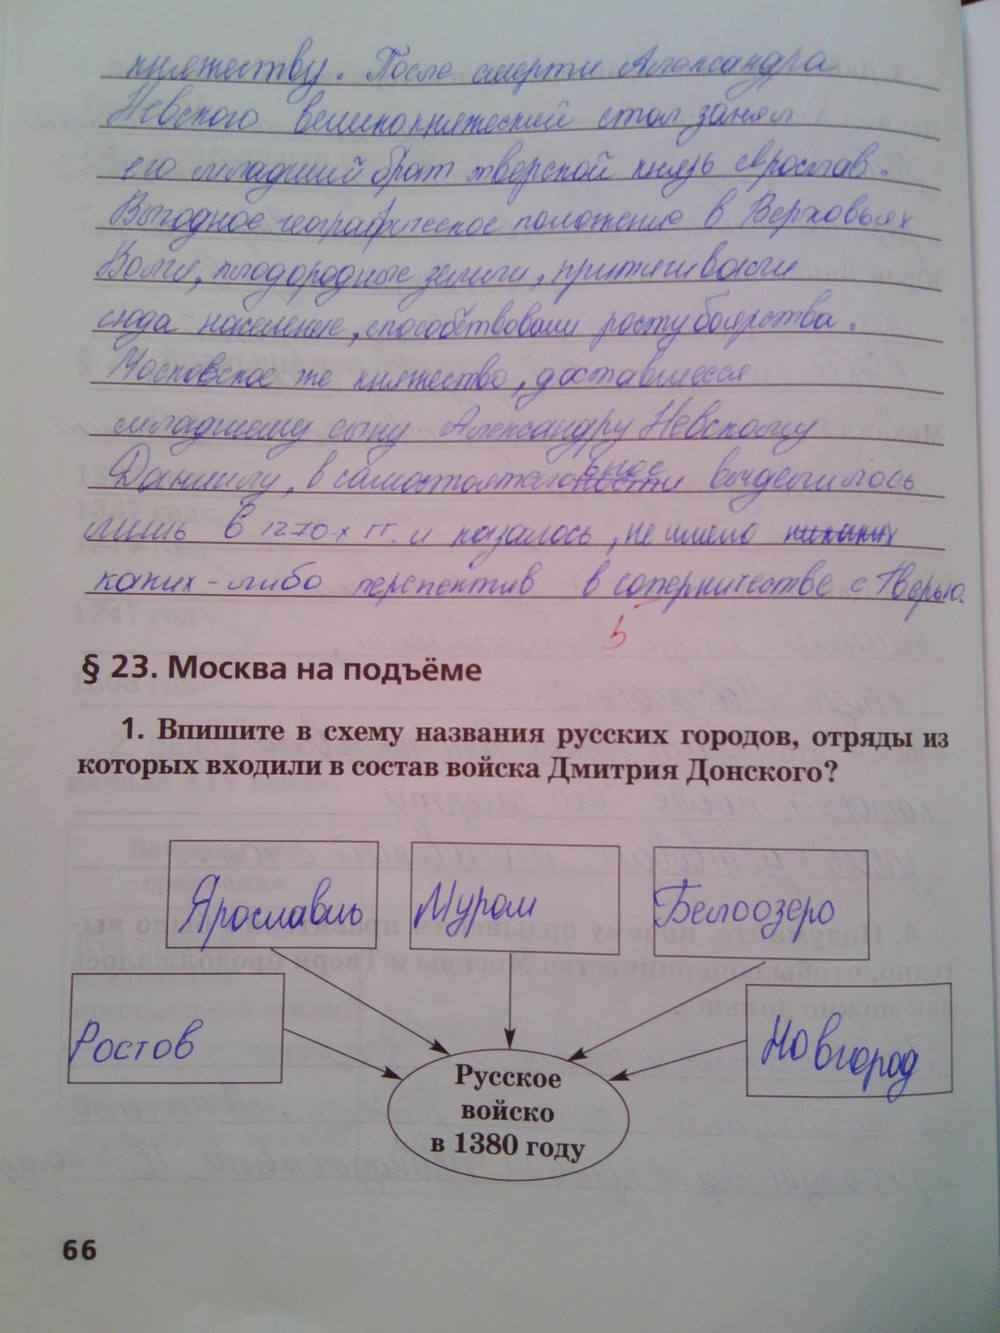 княжеству. После смерти Александра
Невского великокняжеский стол занял
его младший брат тверской князь Ярослав.
Выгодное географическое положение в Верховьях
Волги, плодородные земли, притягивали
сюда население, способствовали росту боярства.
Московское же княжество, доставшееся
младшему сыну Александру Невскому
Даниилу, в выделилось
лишь в 1270-х гг. и казалось, не имело никаких
каких-либо перспектив в соперничестве с Тверью.
5
§ 23. Москва на подъёме
1. Впишите в схему названия русских городов, отряды из
которых входили в состав войска Дмитрия Донского?
Ярославль Муром Белоозеро
Ростов Новгород
Русское
войско
в 1380 году
66